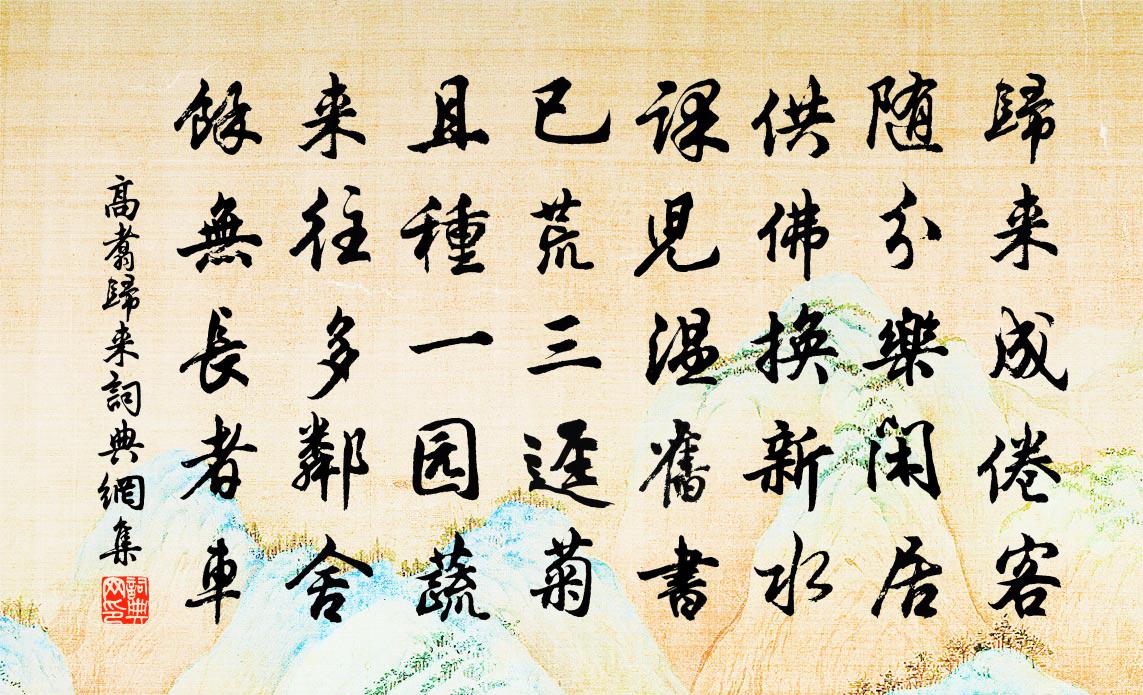 歸来成倦客
随分樂閑居
供佛換新水
課児温舊書
已荒三逕菊
且種一园蔬
来往多鄰舍
餘無長者車
高翥歸来詞典網集
詞典网印